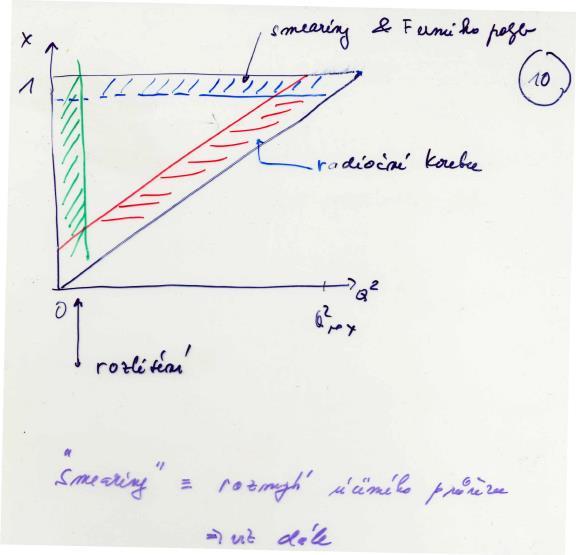 smearing & Fermiho pohyb
10
x
1
radiační korekce
0
Q²
Q²max
rozlišení
"Smearing" ≡ rozmytí účinného průřezu
⇒ viz dále